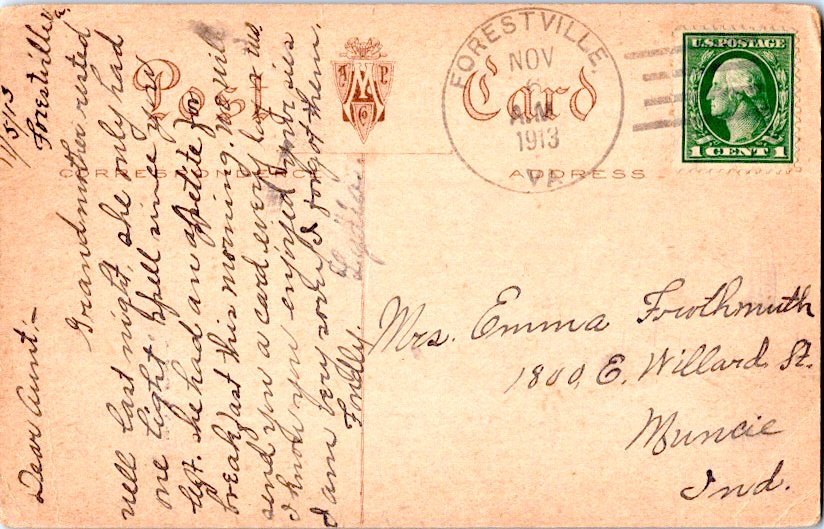 Post Card
A M P Co
FORESTVILLE,
NOV
6
A.M.
1913
VA.
U.S. POSTAGE
1 CENT 1
CORRESPONDENCE
ADDRESS
11/5/13
Forestville
Va.
Dear Aunt:-
Grandmother rested
well last night, she only had
one light spell since you
left. She had an appetite for
breakfast this morning. We will
send you a card every day or two
I know you enjoyed
I am very sorry I forgot them.
Fondly.
Lydia.
Mrs. Emma Frothmuth
1800 E. Willard St.
Muncie
Ind.